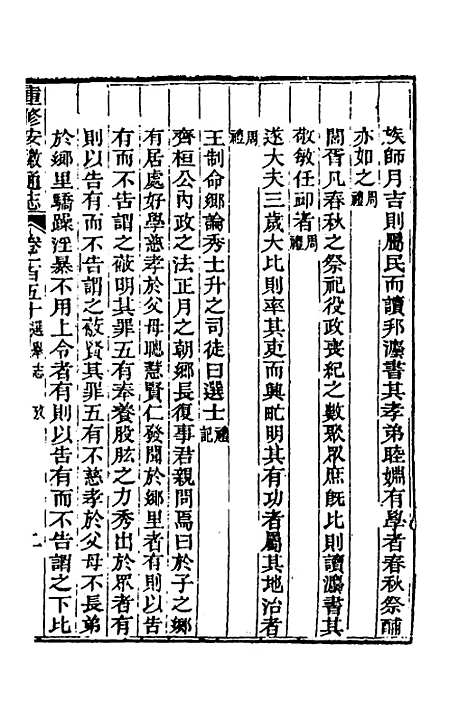 族師月吉則屬民而讀邦灋書其孝弟睦婣有學者春秋祭酺
亦如之周禮
閭胥凡春秋之祭祀役政喪紀之數聚眾庶旣比則讀灋書其
敬敏任卹者周禮
遂大夫三歲大比則率其吏而興甿明其有功者屬其地治者
周禮
王制命鄉論秀士升之司徒曰選士禮記
齊桓公內政之法正月之朝鄉長復事君親問焉曰於子之鄉
有居處好學慈孝於父母聰慧賢仁發聞於鄉里者有則以告
有而不告謂之蔽明其罪五有奉養股肱之力秀出於眾者有
則以告有而不告謂之蔽賢其罪五有不慈孝於父母不長弟
於鄉里驕躁淫暴不用上令者有則以告有而不告謂之下比
重修安徽通志 卷一百五十 選舉志 二